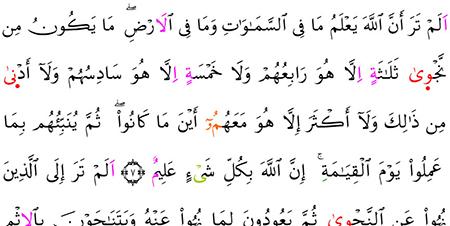 اَلَمْ تَرَ أَنَّ ٱللَّهَ يَعْلَمُ مَا فِى ٱلسَّمَـٰوَٰتِ وَمَا فِى ٱلَارْضِ ۖ مَا يَكُونُ مِن
نَّجْوٜىٰ ثَلَـٰثَةٍ اِلَّا هُوَ رَابِعُهُمْ وَلَا خَمْسَةٍ اِلَّا هُوَ سَادِسُهُمْ وَلَآ أَدْنٜىٰ
مِن ذَٰلِكَ وَلَآ أَكْثَرَ إِلَّا هُوَ مَعَهُمُۥٓ أَيْنَ مَا كَانُواْ ۖ ثُمَّ يُنَبِّئُهُم بِمَا
عَمِلُواْ يَوْمَ ٱلْقِيَـٰمَةِ ۚ إِنَّ ٱللَّهَ بِكُلِّ شَىْءٍ عَلِيمٌ ﴿٧﴾ اَلَمْ تَرَ إِلَى ٱلَّذِينَ
نُهُواْ عَنِ ٱلنَّجْوٜىٰ ثُمَّ يَعُودُونَ لِمَا نُهُواْ عَنْهُ وَيَتَنَـٰجَوْنَ بِٱلِاثْمِ